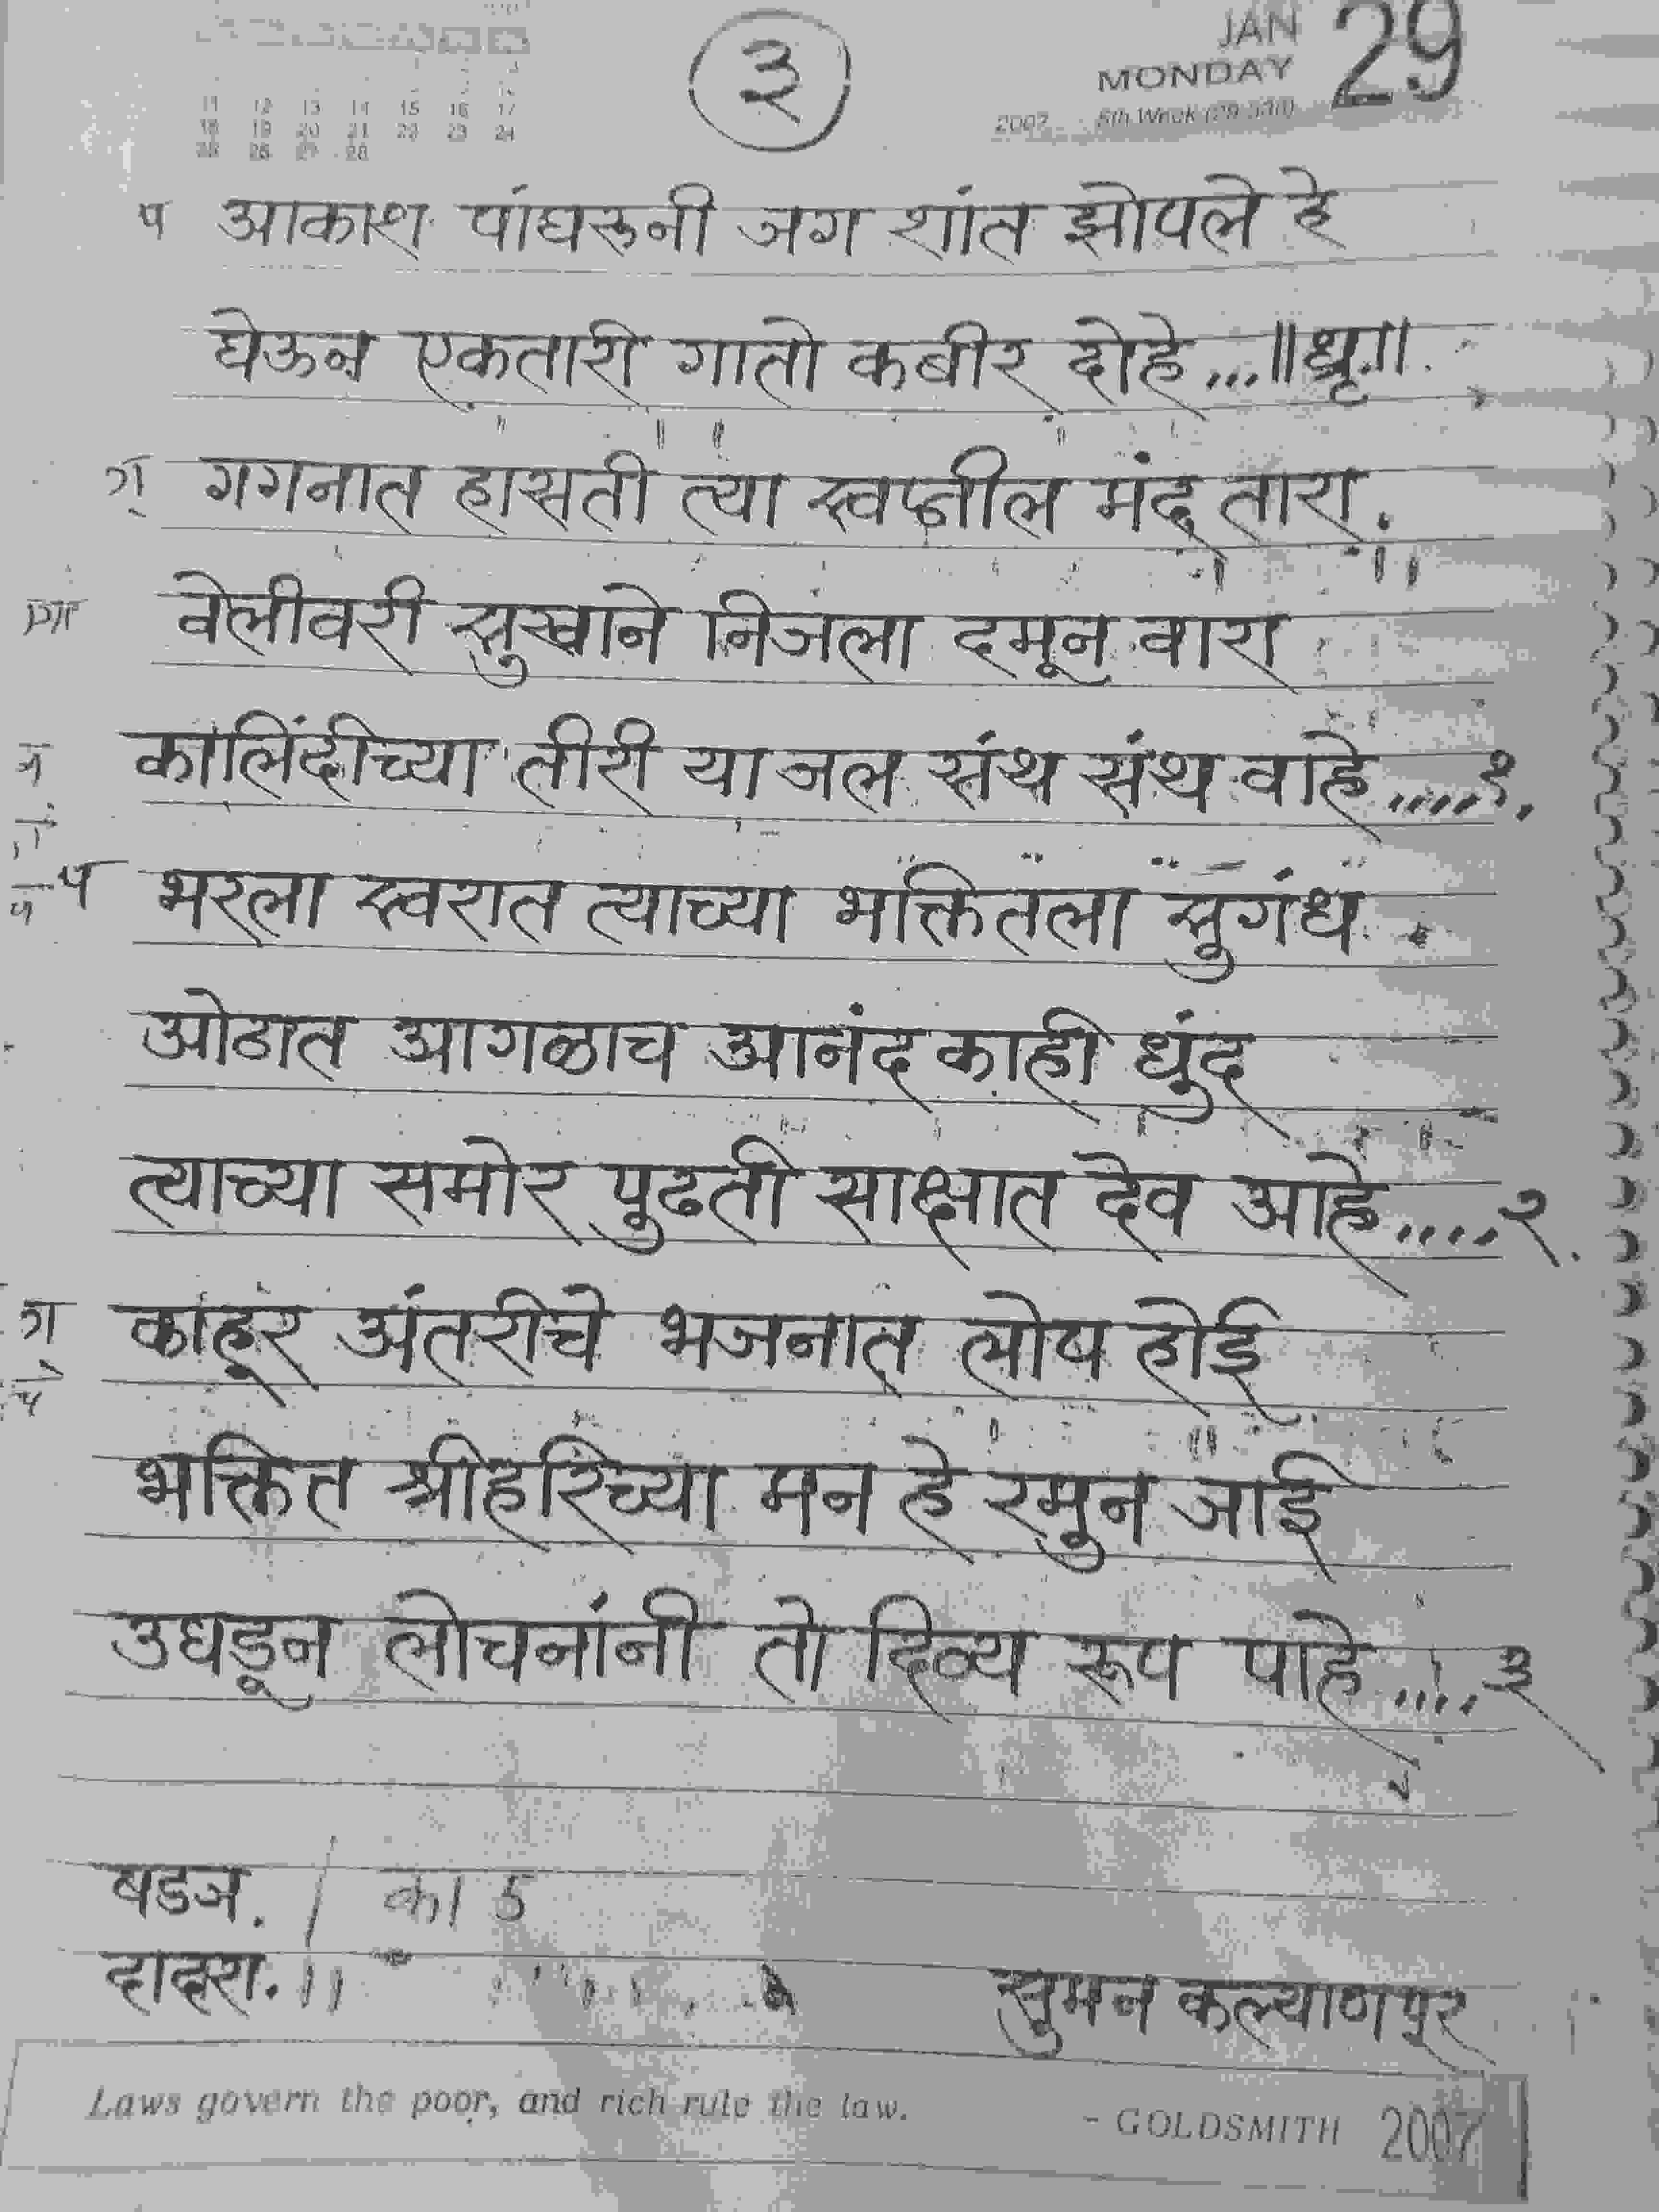 ३
JAN 29
MONDAY
2007 5th Week
11 12 13 14 15 16 17
18 19 20 21 22 23 24
25 26 27 28
प आकाश पांघरूनी जग शांत झोपले हे
घेऊन एकतारी गातो कबीर दोहे...॥धृ॥
ग गगनात हासती त्या स्वप्नील मंद तारा.
वेलीवरी सुखाने निजला दमून वारा
कालिंदीच्या तीरी या जल संथ संथ वाहे.....१.
प भरला स्वरात त्याच्या भक्तितला सुगंध
ओठात आगळाच आनंद काही धुंद
त्याच्या समोर पुढती साक्षात देव आहे.....२.
ग काहूर अंतरीचे भजनात लोप होई
भक्तित श्रीहरिच्या मन हे रमुन जाई
उघडून लोचनांनी तो दिव्य रूप पाहे.....३
षडज. / का 5
दादरा.॥
सुमन कल्याणपूर
Laws govern the poor, and rich rule the law.
- GOLDSMITH 2007